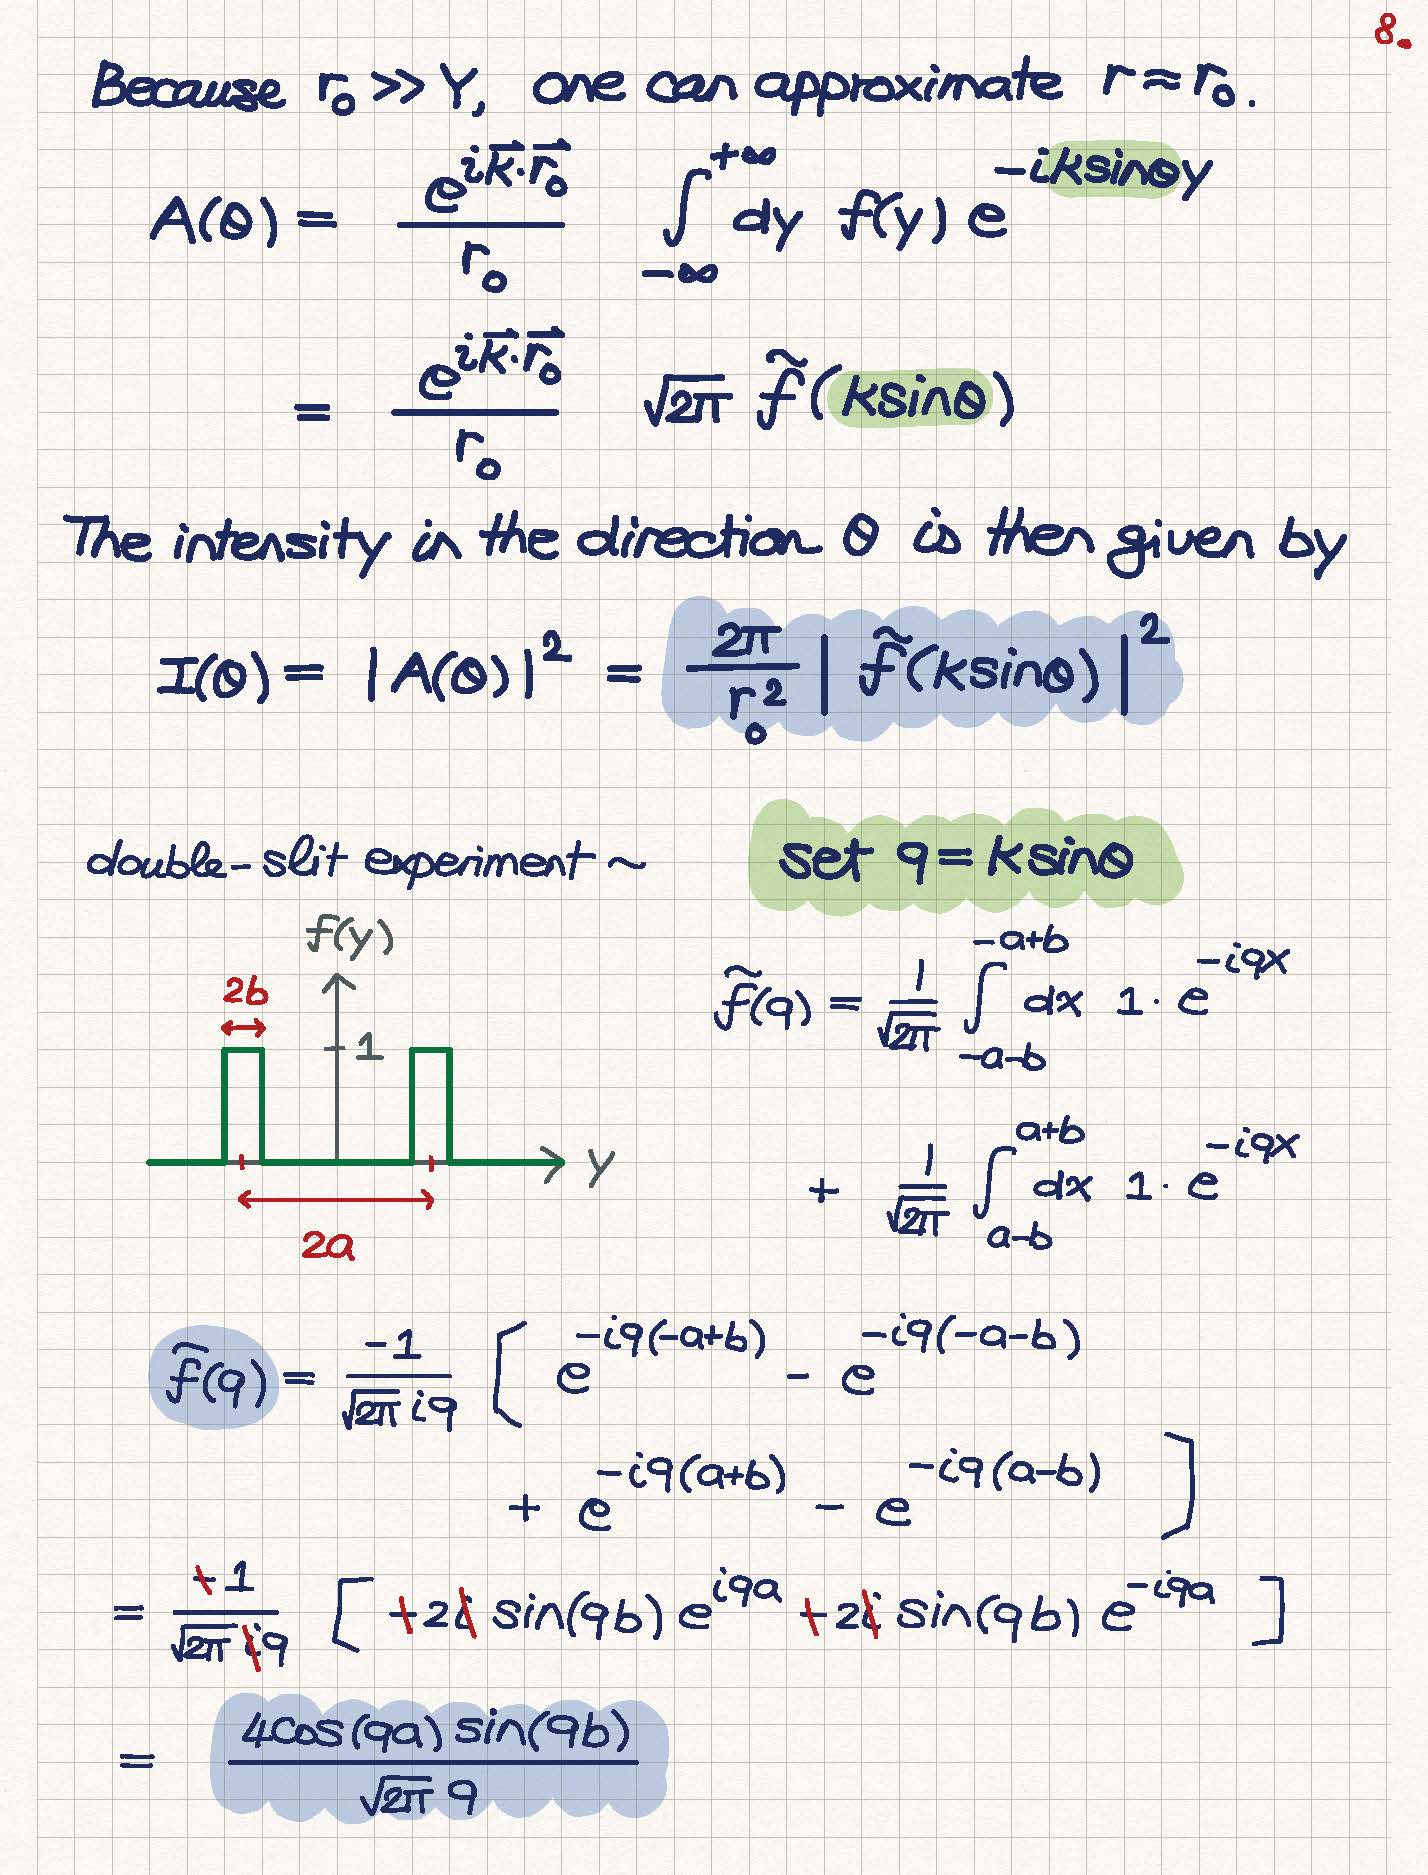 8.
Because r₀ >> Y, one can approximate r ≈ r₀.
A(θ) = e^{i\vec{k}·\vec{r₀}} / r₀ ∫_{-∞}^{+∞} dy f(y) e^{-iksinθy}
= e^{i\vec{k}·\vec{r₀}} / r₀ √2π f̃(ksinθ)
The intensity in the direction θ is then given by
I(θ) = |A(θ)|² = 2π / r₀² | f̃(ksinθ) |²
double-slit experiment ~
set q = ksinθ
f(y)
2b
1
y
2a
f̃(q) = 1/√2π ∫_{-a-b}^{-a+b} dx 1· e^{-iqx}
+ 1/√2π ∫_{a-b}^{a+b} dx 1· e^{-iqx}
f̃(q) = -1 / √2π iq [ e^{-iq(-a+b)} - e^{-iq(-a-b)}
+ e^{-iq(a+b)} - e^{-iq(a-b)} ]
= -1 / √2π iq [ -2i sin(qb) e^{iqa} -2i sin(qb) e^{-iqa} ]
= 4cos(qa) sin(qb) / √2π q